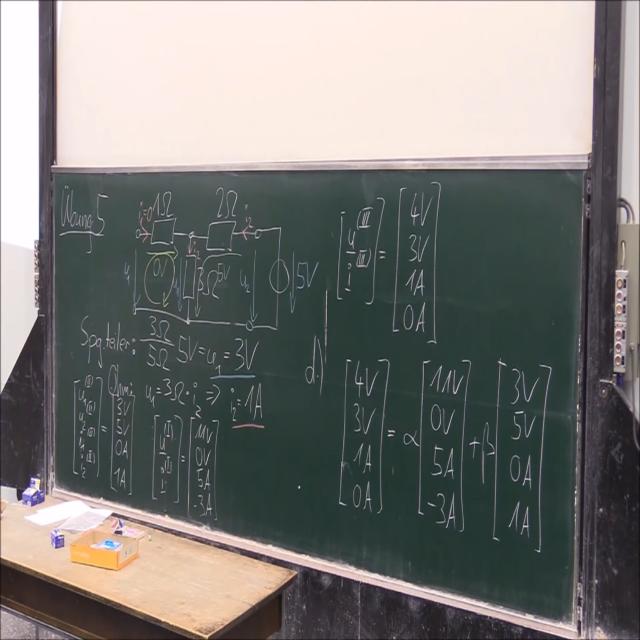 Übung 5
1Ω 2Ω
0V 3Ω 5V 5V
Spgteiler: 3Ω/5Ω 5V = u₁ = 3V
u₁ = 3Ω · i₂ ⇒ i₂ = 1A
= [3V 5V 0A 1A]
[u^(II) i^(II)] = [11V 0V 5A -3A]
[u^(III) i^(III)] = [4V 3V 1A 0A]
d)
[4V 3V 1A 0A] = α [11V 0V 5A -3A] + β [3V 5V 0A 1A]